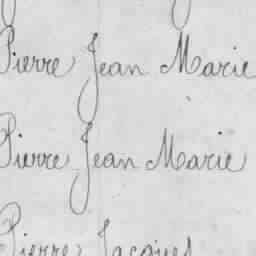 Pierre Jean Marie
Pierre Jean Marie
Pierre Jacques